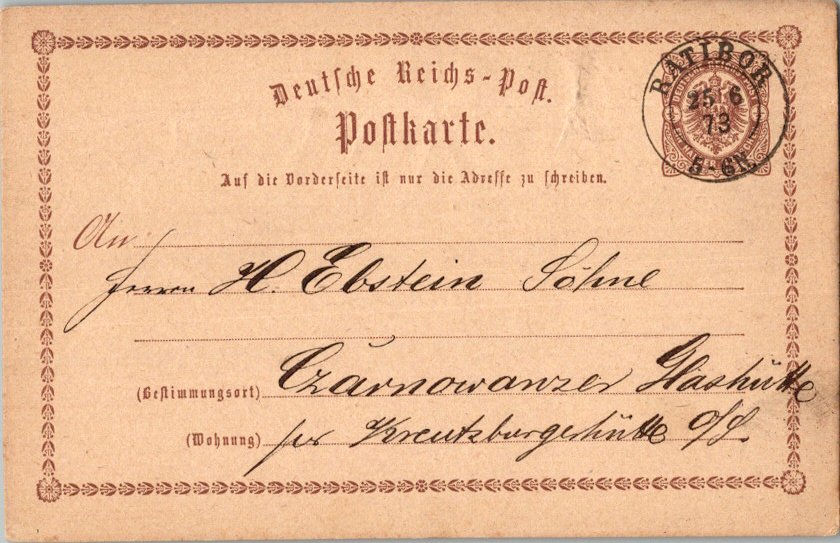 Deutsche Reichs-Post.
Postkarte.
Auf die Vorderseite ist nur die Adresse zu schreiben.
RATIBOR
25 6
73
5-6N.
An
Herrn H. Ebstein Söhne
(Bestimmungsort) Czarnowanzer Glashütte
(Wohnung) per Kreutzburgerhütte o/S.